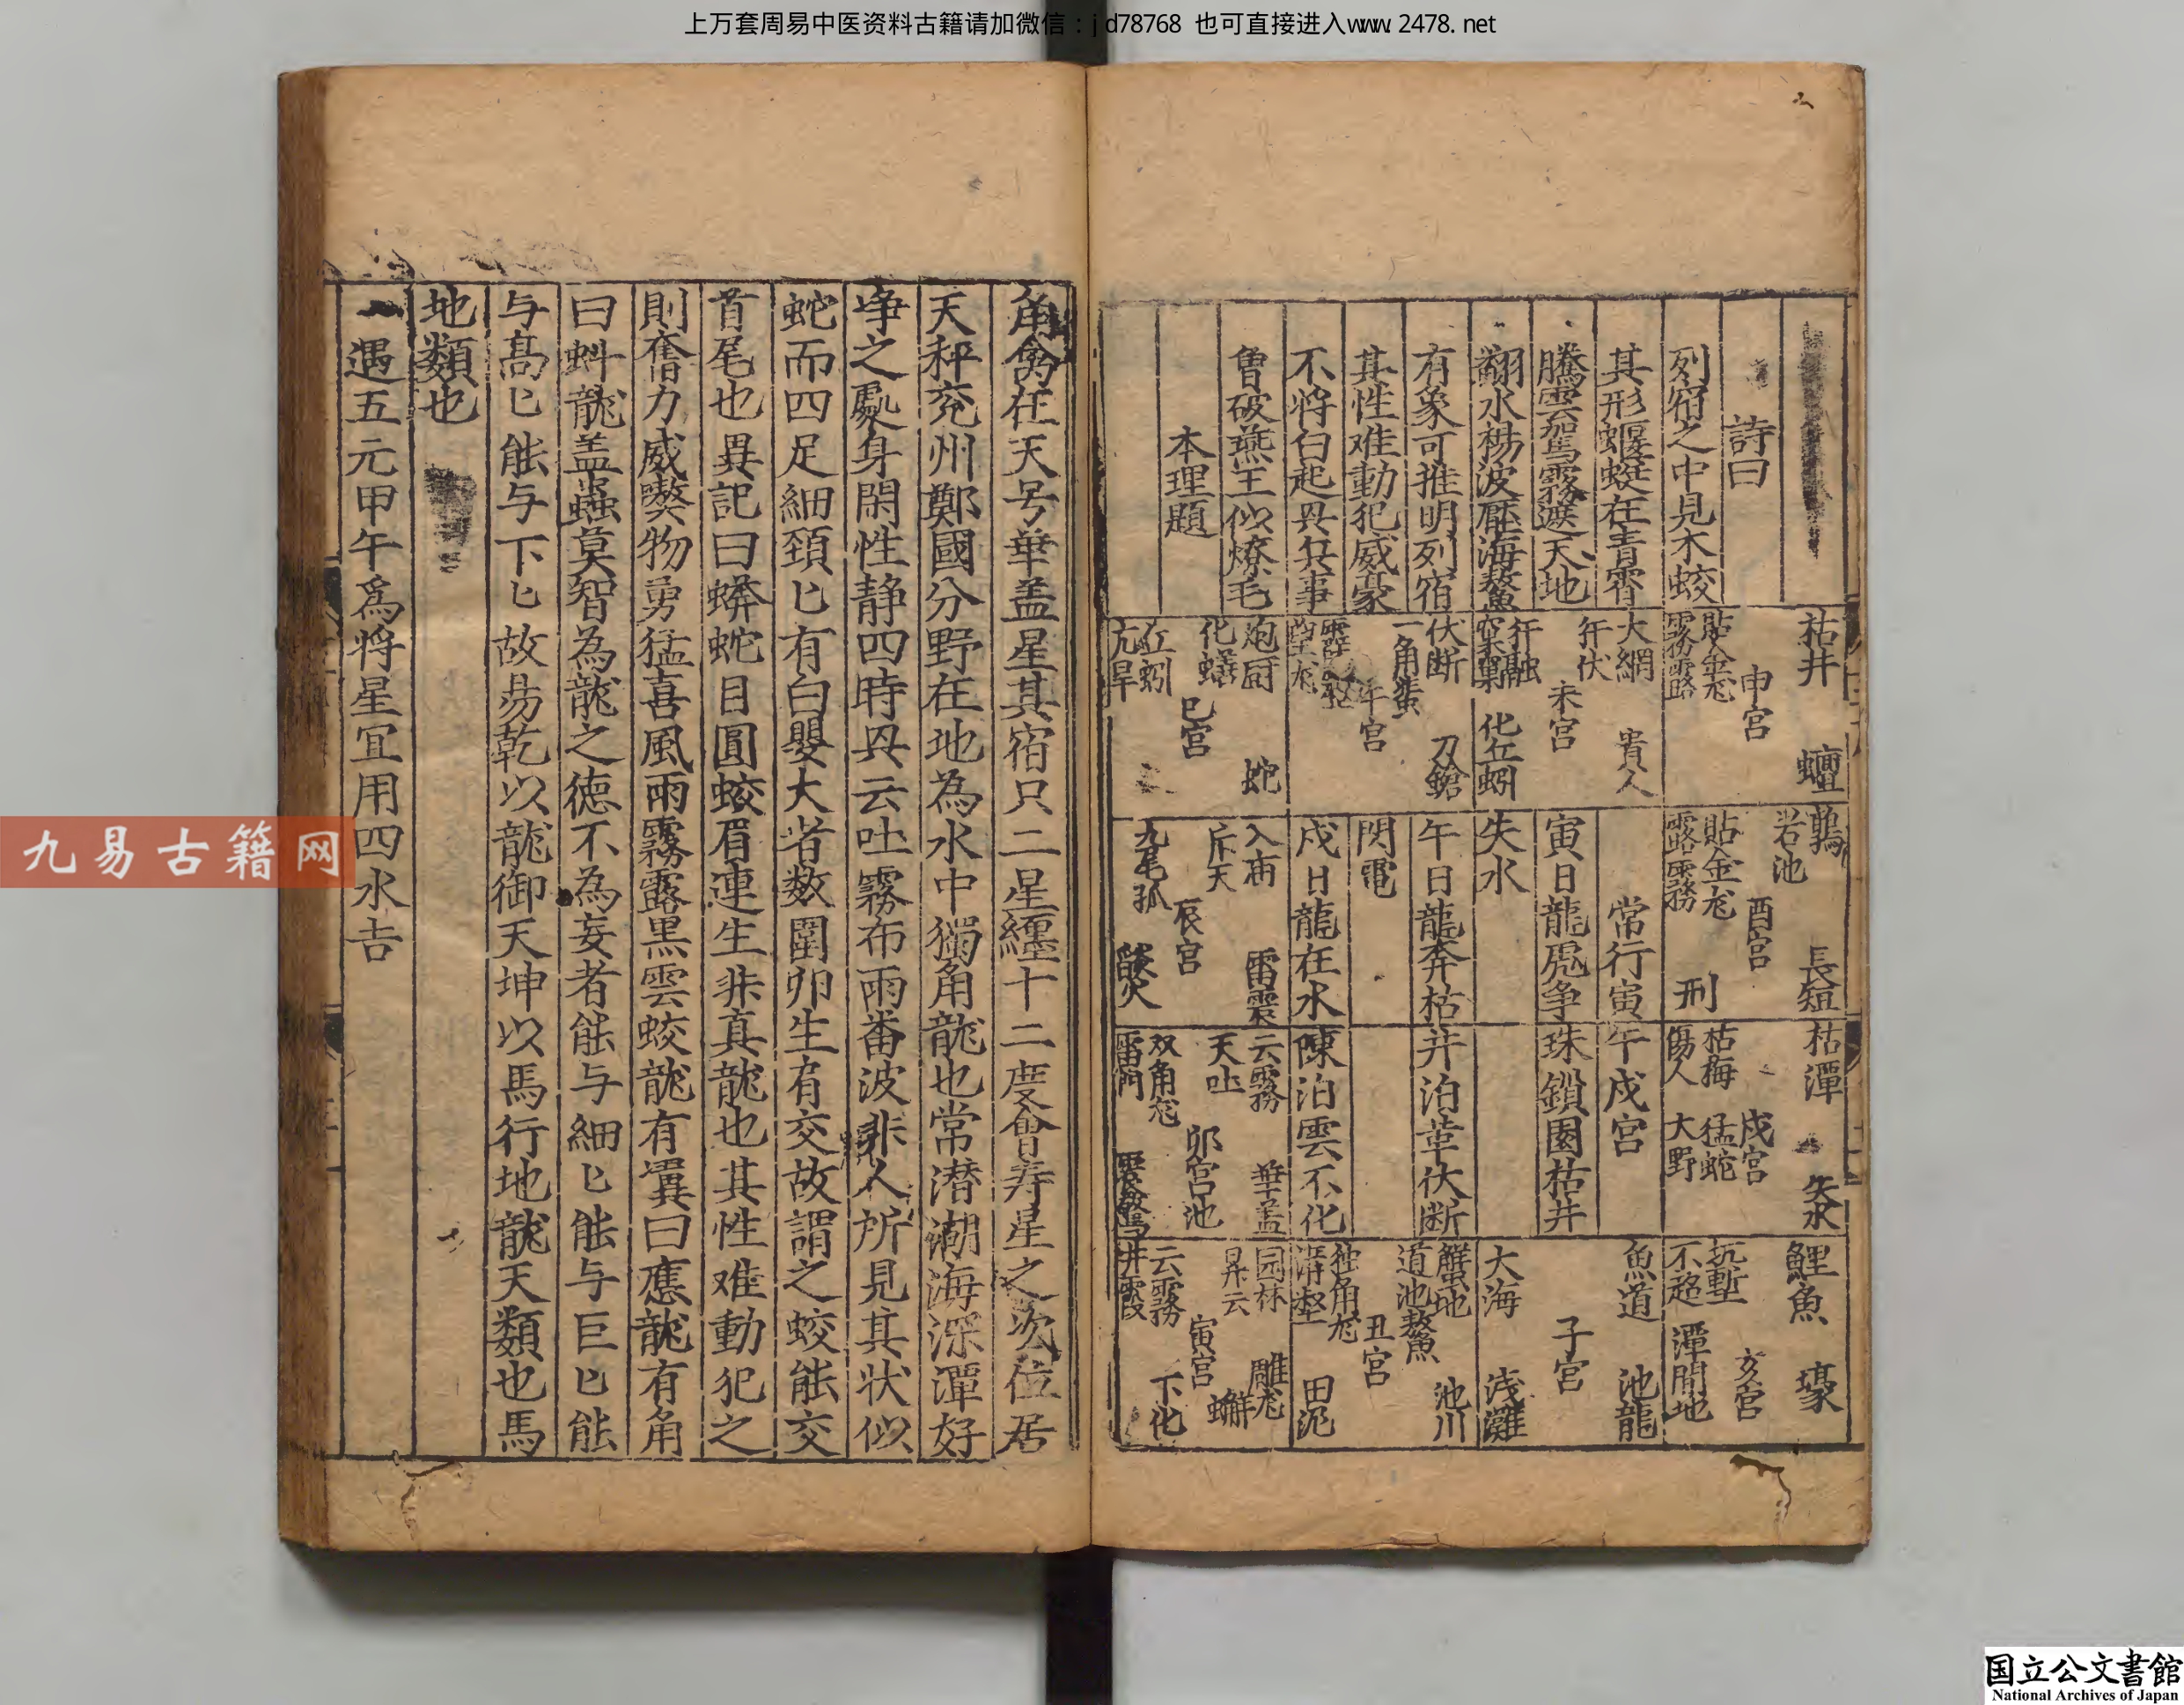 上万套周易中医资料古籍请加微信：jd78768 也可直接进入www.2478.net
詩曰
列宿之中見木蛟
其形蝘蜓在青霄
騰雲駕霧遊天地
翻水揚波壓海鰲
有象可推明列宿
其性难動犯威豪
不将白起兴兵事
曽破燕王似燎毛
本理題
枯井 蟺
貼金尨
霧露
申宫
大網 貴人
犴伏
未宫
犴融
窠巢 化丘蚓
伏断 刀鎗
一角蚩
午宫
炮厨 蛇
化蟮
巳宫
丘蚓
亢旱
鷄 長短
若池
貼金尨
露霧 刑
酉宫
常行寅午戍宫
寅日龍虎争珠鎖園枯井
失水
午日龍奔枯井泊革伏断
閃電
戍日龍在水陳泊雲不化
入庙 雷震
斥天
辰宫
九尾狐
枯潭 失水
枯梅 猛蛇
傷人 大野
戍宫
云霧 華盖
天吐
卯宫池
双角尨
雷門
鯉魚 壕
坑塹
不起 潭間地
亥宫
魚道 池龍
子宫
大海 浅灘
蟹地 池川
道池鰲魚
丑宫
独角尨
溝壑 田泥
园林 雕尨
昇云 蠏
寅宫
云霧 下化
井霞
角禽在天号華盖星其宿只二星纏十二度會寿星之次位居
天秤兖州鄭國分野在地為水中獨角龍也常潜潮海深潭好
净之處身閑性静四時兴云吐霧布雨番波非人所見其状似
蛇而四足細頚匕有白嬰大者数圍卵生有交故謂之蛟能交
首尾也異記曰蠎蛇目圓蛟眉連生非真龍也其性难動犯之
則奮力威嬰物勇猛喜風雨霧露黒雲蛟龍有翼曰應龍有角
曰蚪龍盖蟲莫智為龍之徳不為妄者能与細匕能与巨匕能
与高匕能与下匕故昜乾以龍御天坤以馬行地龍天類也馬
地類也
一遇五元甲午爲将星宜用四水吉
九易古籍网
国立公文書館
National Archives of Japan